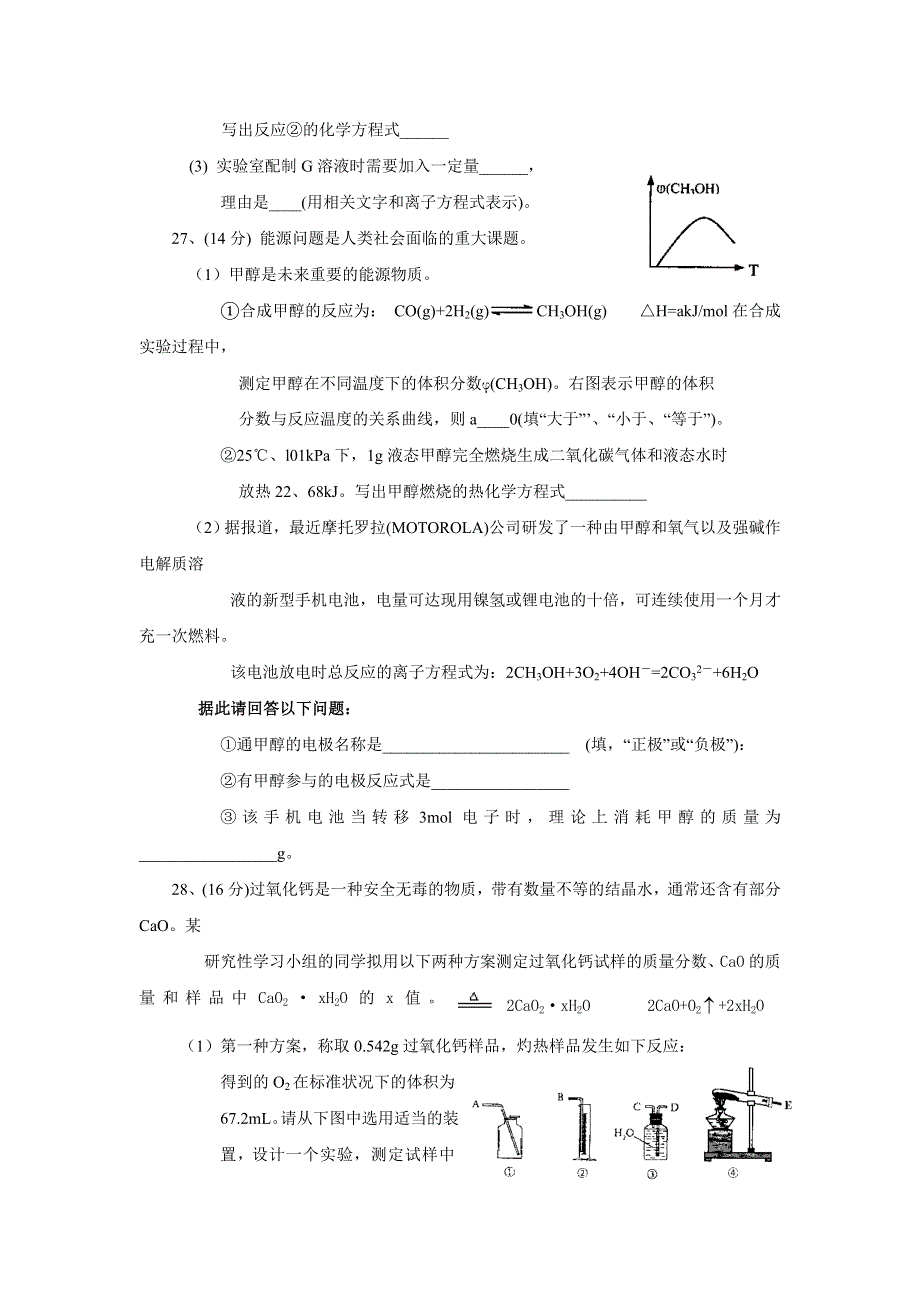 写出反应②的化学方程式______
(3) 实验室配制 G 溶液时需要加入一定量______，
理由是____(用相关文字和离子方程式表示)。
φ(CH₃OH)
T
27、(14 分) 能源问题是人类社会面临的重大课题。
（1）甲醇是未来重要的能源物质。
①合成甲醇的反应为： CO(g)+2H₂(g)⇌CH₃OH(g) △H=akJ/mol 在合成
实验过程中，
测定甲醇在不同温度下的体积分数φ(CH₃OH)。右图表示甲醇的体积
分数与反应温度的关系曲线，则 a____0(填“大于”’、“小于、“等于”)。
②25℃、l01kPa 下，1g 液态甲醇完全燃烧生成二氧化碳气体和液态水时
放热 22、68kJ。写出甲醇燃烧的热化学方程式__________
（2）据报道，最近摩托罗拉(MOTOROLA)公司研发了一种由甲醇和氧气以及强碱作
电解质溶
液的新型手机电池，电量可达现用镍氢或锂电池的十倍，可连续使用一个月才
充一次燃料。
该电池放电时总反应的离子方程式为：2CH₃OH+3O₂+4OH⁻=2CO₃²⁻+6H₂O
据此请回答以下问题：
①通甲醇的电极名称是_______________________ (填，“正极”或“负极”)：
②有甲醇参与的电极反应式是_________________
③该手机电池当转移 3mol 电子时，理论上消耗甲醇的质量为
_________________g。
28、(16 分)过氧化钙是一种安全无毒的物质，带有数量不等的结晶水，通常还含有部分
CaO。某
研究性学习小组的同学拟用以下两种方案测定过氧化钙试样的质量分数、CaO 的质
量和样品中 CaO₂·xH₂O 的 x 值。 △ 2CaO₂·xH₂O 2CaO+O₂↑+2xH₂O
（1）第一种方案，称取 0.542g 过氧化钙样品，灼热样品发生如下反应：
得到的 O₂在标准状况下的体积为
67.2mL。请从下图中选用适当的装
置，设计一个实验，测定试样中
A B C D E
H₂O
① ② ③ ④